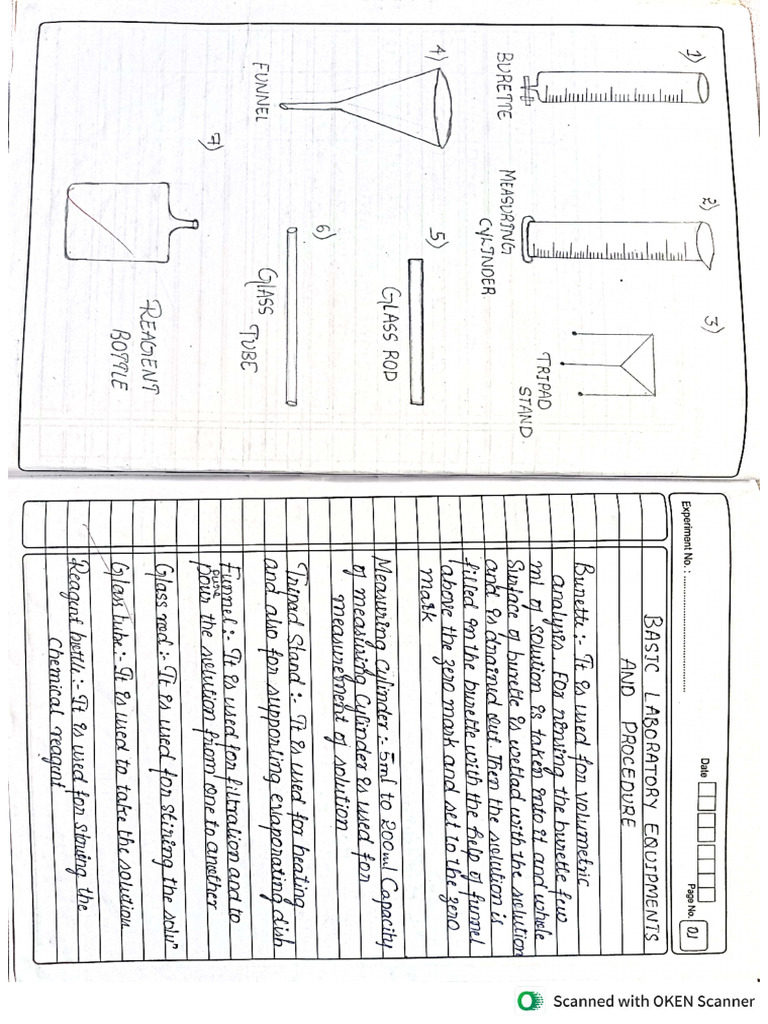 1)
BURETTE
2)
MEASURING
CYLINDER
3)
TRIPAD
STAND
4)
FUNNEL
5)
GLASS ROD
6)
GLASS
TUBE
7)
REAGENT
BOTTLE
Experiment No. :
Date
Page No. 01
BASIC LABORATORY EQUIPMENTS
AND PROCEDURE
Burette :- It is used for volumetric
analysis. For rinsing the burette few
ml of solution is taken into it and whole
Surface of burette is wetted with the solution
and is drained out. Then the solution is
filled in the burette with the help of funnel
above the zero mark and set to the zero
mark
Measuring Cylinder :- 5ml to 200ml Capacity
of measuring Cylinder is used for
measurement of solution
Tripad Stand :- It is used for heating
and also for supporting evaporating dish
Funnel :- It is used for filtration and to
pour the solution from one to another
Glass rod :- It is used for stiring the solun
Glass tube :- It is used to take the solution
Reagent bottle :- It is used for stowing the
chemical reagent
Scanned with OKEN Scanner